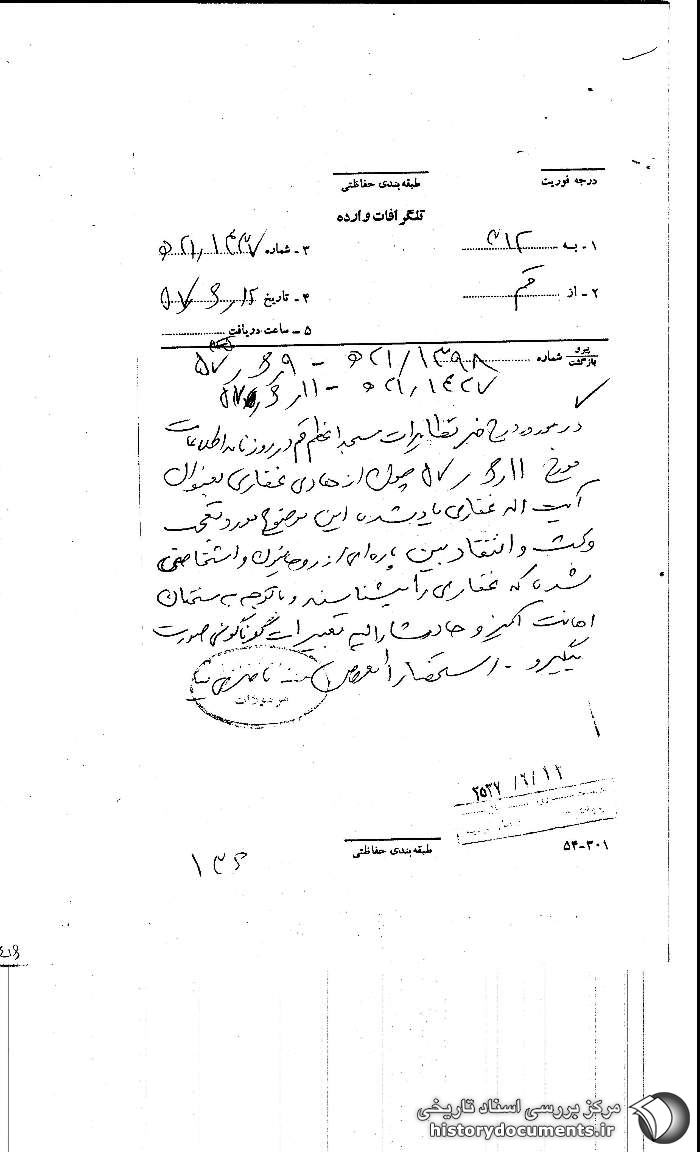 درجه فوریت
طبقه‌بندی حفاظتی
تلگرافات وارده
۱ - به ۳۱۲
۳ - شماره ۲۱/۱۴۳۷ ه
۲ - از قم
۴ - تاریخ ۵۷/۶/۱۲
۵ - ساعت دریافت
پیرو
بازگشت
شماره ۲۱/۱۳۹۸ ه - ۵۷/۶/۹
۲۱/۱۴۲۷ ه - ۵۷/۶/۱۱
در مورد درج خبر تظاهرات مسجد اعظم قم در روزنامه اطلاعات
مورخ ۵۷/۶/۱۱ چون از هادی غفاری بعنوان
آیت اله غفاری یاد شده این موضوع مورد تعجب
و بحث و انتقاد بین پاره‌ای از روحانیون و اشخاصی
شده که غفاری را میشناسند و با توجه به سخنان
اهانت آمیز و حاد مشارالیه تعبیرات گوناگونی صورت
میگیرد - استحضارا معروض
۲۵۳۷/۶/۱۲
طبقه‌بندی حفاظتی
۵۴-۳۰۱
۱۳۶
مرکز بررسی اسناد تاریخی
historydocuments.ir